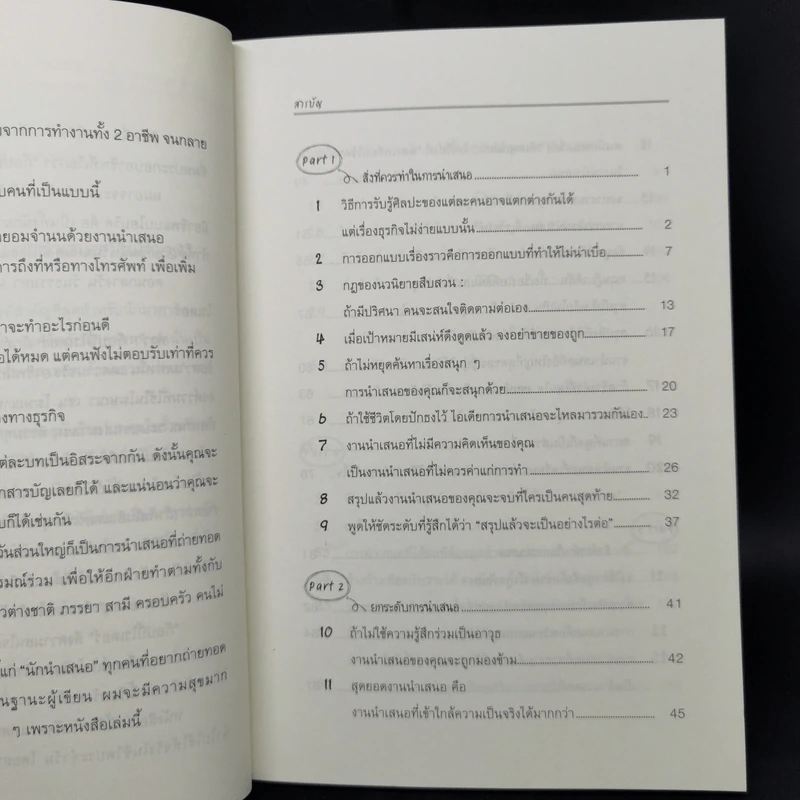 จากการทำงานทั้ง 2 อาชีพ จนกลาย
บคนที่เป็นแบบนี้
ยอมจำนนด้วยงานนำเสนอ
การถึงที่หรือทางโทรศัพท์ เพื่อเพิ่ม
าจะทำอะไรก่อนดี
อได้หมด แต่คนฟังไม่ตอบรับเท่าที่ควร
งทางธุรกิจ
ต่ละบทเป็นอิสระจากกัน ดังนั้นคุณจะ
กสารบัญเลยก็ได้ และแน่นอนว่าคุณจะ
บก็ได้เช่นกัน
วันส่วนใหญ่ก็เป็นการนำเสนอที่ถ่ายทอด
รมณ์ร่วม เพื่อให้อีกฝ่ายทำตามทั้งกับ
วต่างชาติ ภรรยา สามี ครอบครัว คนไม่
ี้แก่ “นักนำเสนอ” ทุกคนที่อยากถ่ายทอด
นฐานะผู้เขียน ผมจะมีความสุขมาก
ๆ เพราะหนังสือเล่มนี้
สารบัญ
Part 1
สิ่งที่ควรทำในการนำเสนอ 1
1 วิธีการรับรู้ศิลปะของแต่ละคนอาจแตกต่างกันได้
แต่เรื่องธุรกิจไม่ง่ายแบบนั้น 2
2 การออกแบบเรื่องราวคือการออกแบบที่ทำให้ไม่น่าเบื่อ 7
3 กฎของนวนิยายสืบสวน :
ถ้ามีปริศนา คนจะสนใจติดตามต่อเอง 13
4 เมื่อเป้าหมายมีเสน่ห์ดึงดูดแล้ว จงอย่าขายของถูก 17
5 ถ้าไม่หยุดค้นหาเรื่องสนุก ๆ
การนำเสนอของคุณก็จะสนุกด้วย 20
6 ถ้าใช้ชีวิตโดยปักธงไว้ ไอเดียการนำเสนอจะไหลมารวมกันเอง 23
7 งานนำเสนอที่ไม่มีความคิดเห็นของคุณ
เป็นงานนำเสนอที่ไม่ควรค่าแก่การทำ 26
8 สรุปแล้วงานนำเสนอของคุณจะจบที่ใครเป็นคนสุดท้าย 32
9 พูดให้ชัดระดับที่รู้สึกได้ว่า “สรุปแล้วจะเป็นอย่างไรต่อ” 37
Part 2
ยกระดับการนำเสนอ 41
10 ถ้าไม่ใช้ความรู้สึกร่วมเป็นอาวุธ
งานนำเสนอของคุณจะถูกมองข้าม 42
11 สุดยอดงานนำเสนอ คือ
งานนำเสนอที่เข้าใกล้ความเป็นจริงได้มากกว่า 45